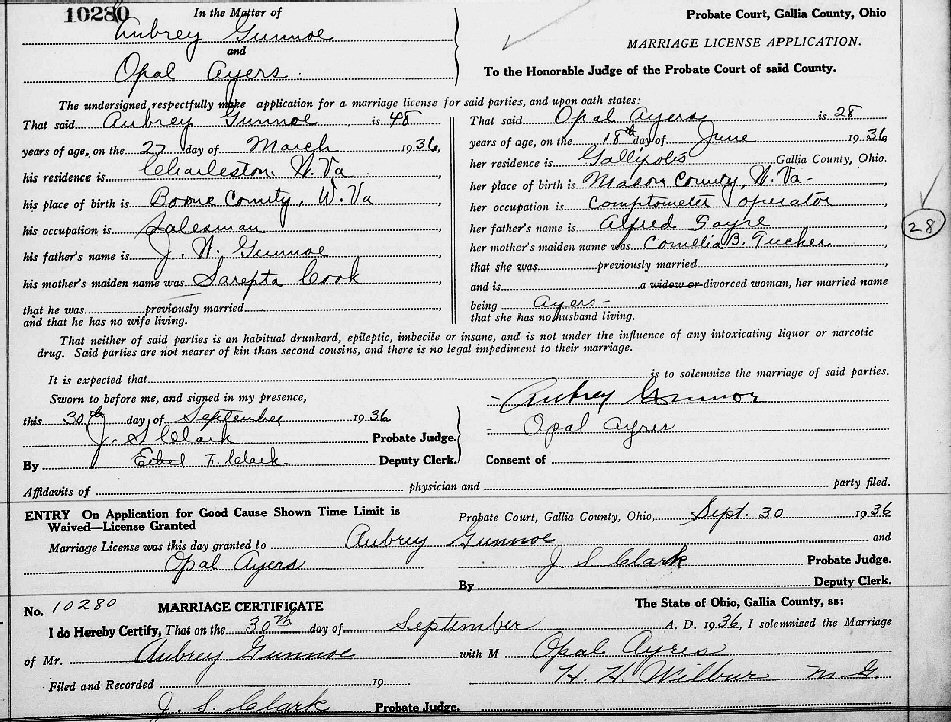 10280 In the Matter of
Aubrey Gunnoe
and
Opal Ayers.
Probate Court, Gallia County, Ohio
MARRIAGE LICENSE APPLICATION.
To the Honorable Judge of the Probate Court of said County.
The undersigned respectfully make application for a marriage license for said parties, and upon oath states:
That said Aubrey Gunnoe is 48
years of age, on the 27 day of March 1936,
his residence is Charleston W. Va
his place of birth is Boone County, W. Va
his occupation is Salesman
his father's name is J. W. Gunnoe
his mother's maiden name was Sarepta Cook
that he was previously married
and that he has no wife living.
That said Opal Ayers is 28
years of age, on the 18th day of June 1936,
her residence is Gallipolis Gallia County, Ohio.
her place of birth is Mason County, W. Va-
her occupation is Comptometer operator
her father's name is Alfred Sayre
her mother's maiden name was Cornelia B. Tucker
that she was previously married
and is a widow or divorced woman, her married name
being Ayers-
that she has no husband living.
28
That neither of said parties is an habitual drunkard, epileptic, imbecile or insane, and is not under the influence of any intoxicating liquor or narcotic
drug. Said parties are not nearer of kin than second cousins, and there is no legal impediment to their marriage.
It is expected that is to solemnize the marriage of said parties.
Sworn to before me, and signed in my presence,
this 30th day of September 1936
J. S Clark Probate Judge.
By Ethel F. Clark Deputy Clerk.
Aubrey Gunnoe
Opal Ayres
Consent of
Affidavits of physician and party filed.
ENTRY On Application for Good Cause Shown Time Limit is
Waived—License Granted
Probate Court, Gallia County, Ohio, Sept. 30 1936
Marriage License was this day granted to Aubrey Gunnoe and
Opal Ayers
J S Clark Probate Judge.
By Deputy Clerk.
No. 10280 MARRIAGE CERTIFICATE
The State of Ohio, Gallia County, ss:
I do Hereby Certify, That on the 30th day of September A. D. 1936, I solemnized the Marriage
of Mr. Aubrey Gunnoe with M Opal Ayres
H. H. Wilbur M. G.
Filed and Recorded 19
J. S. Clark Probate Judge.